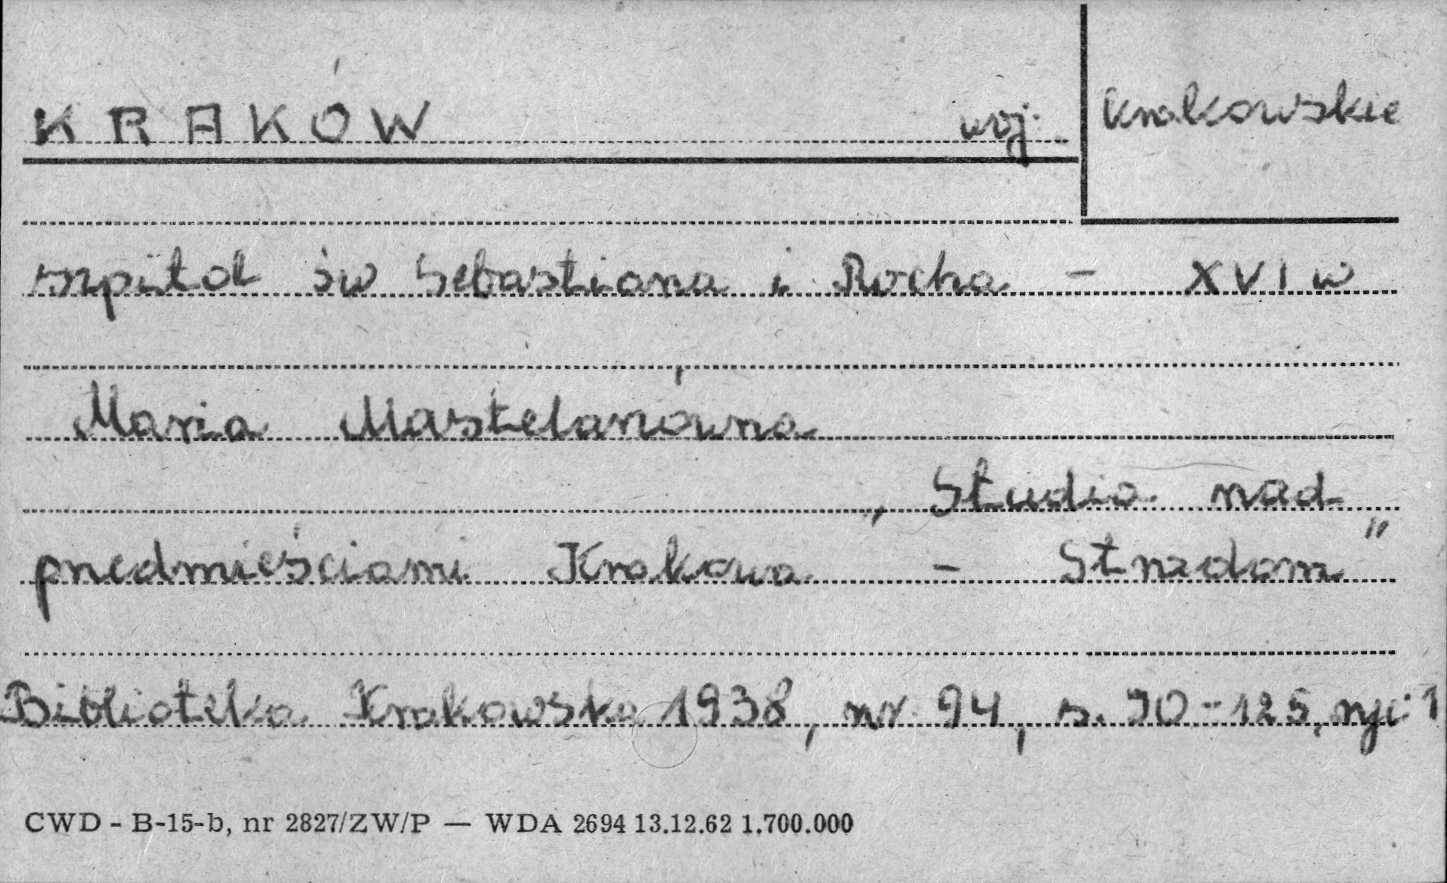 KRAKÓW woj. krakowskie
szpital św Sebastiana i Rocha - XVI w
Maria Mastelanówna
„Studia nad
przedmieściami Krakowa - Stradom”
Biblioteka Krakowska 1938, nr 94, s. 90-125, ryc 1
CWD - B-15-b, nr 2827/ZW/P — WDA 2694 13.12.62 1.700.000